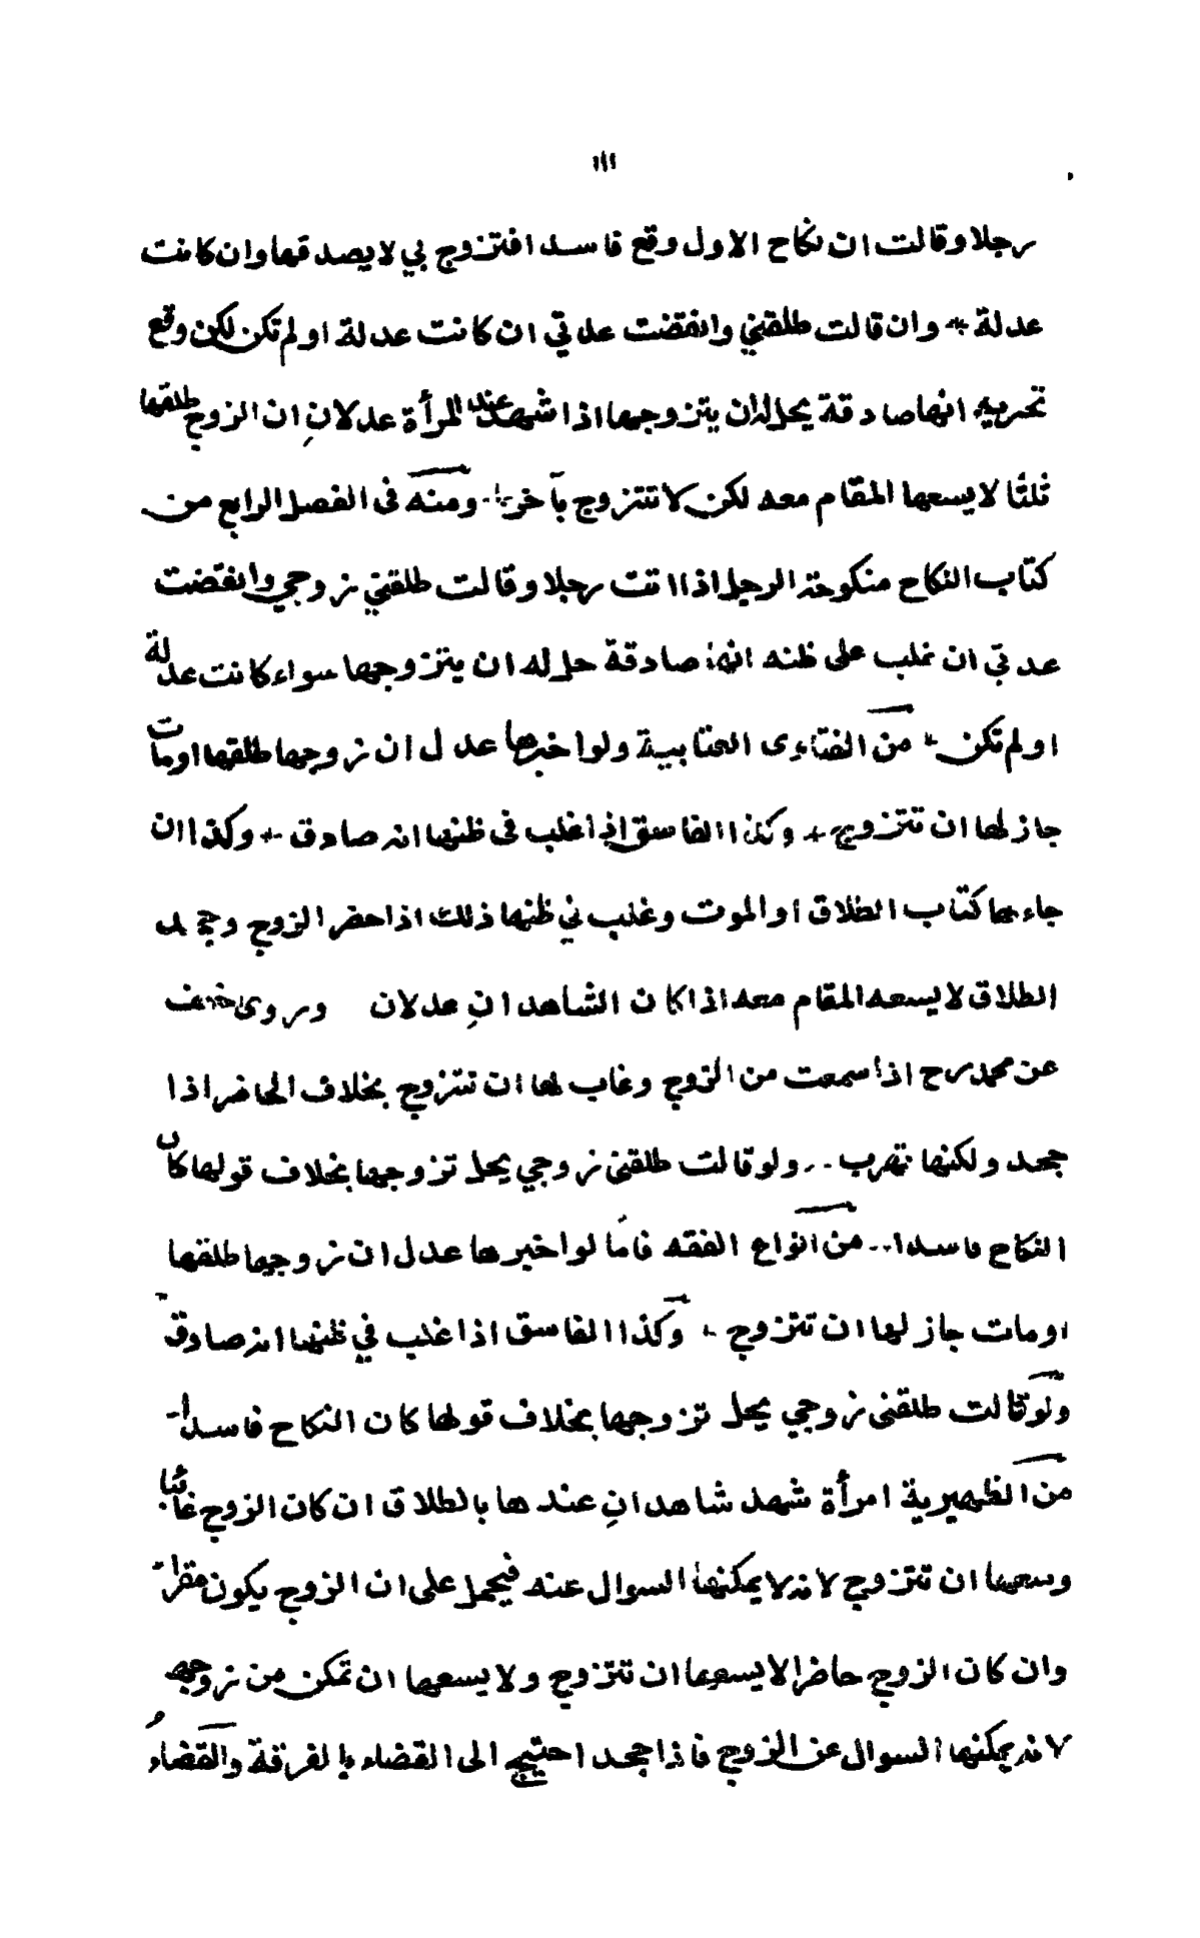 ١١١
رجلا وقالت ان نكاح الاول وقع فاسدا فتزوج بي لا يصدقها وان كانت
عدلة وان قالت طلقني وانقضت عدتي ان كانت عدلة او لم تكن لكن وقع
تحريه انها صادقة يحل له ان يتزوجها اذا شهد عند المرأة عدلانِ ان الزوج طلقها
ثلثا لا يسعها المقام معه لكن لا تتزوج بآخر ومنه فى الفصل الرابع من
كتاب النكاح منكوحة الرجل اذا اتت رجلا وقالت طلقني زوجي وانقضت
عدتي ان غلب على ظنه انها صادقة حل له ان يتزوجها سواء كانت عدلة
او لم تكن من الفتاوى العتابية ولو اخبرها عدل ان زوجها طلقها او مات
جاز لها ان تتزوج وكذا الفاسق اذا غلب فى ظنها انه صادق وكذا ان
جاءها كتاب الطلاق او الموت وغلب في ظنها ذلك اذا حضر الزوج وجحد
الطلاق لا يسعه المقام معه اذا كان الشاهدانِ عدلان وروى خلف
عن محمد رح اذا سمعت من الزوج وغاب لها ان تتزوج بخلاف الحاضر اذا
جحد ولكنها تهرب .. ولو قالت طلقنى زوجي يحل تزوجها بخلاف قولها كان
النكاح فاسدا .. من انواع الفقه فامّا لو اخبرها عدل ان زوجها طلقها
او مات جاز لها ان تتزوج وكذا الفاسق اذا غلب في ظنها انه صادق
ولو قالت طلقنى زوجي يحل تزوجها بخلاف قولها كان النكاح فاسدا
من الظهيرية امرأة شهد شاهدانِ عندها بالطلاق ان كان الزوج غائبا
وسعها ان تتزوج لانه لا يمكنها السوال عنه فيحمل على ان الزوج يكون مقرا
وان كان الزوج حاضرا لا يسعها ان تتزوج ولا يسعها ان تمكن من زوجها
لانه يمكنها السوال عن الزوج فاذا جحد احتيج الى القضاء بالفرقة والقضاءُ